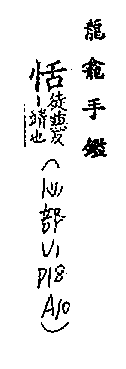 龍龕手鑑
恬徒兼反靖也(心部V1P18A10)